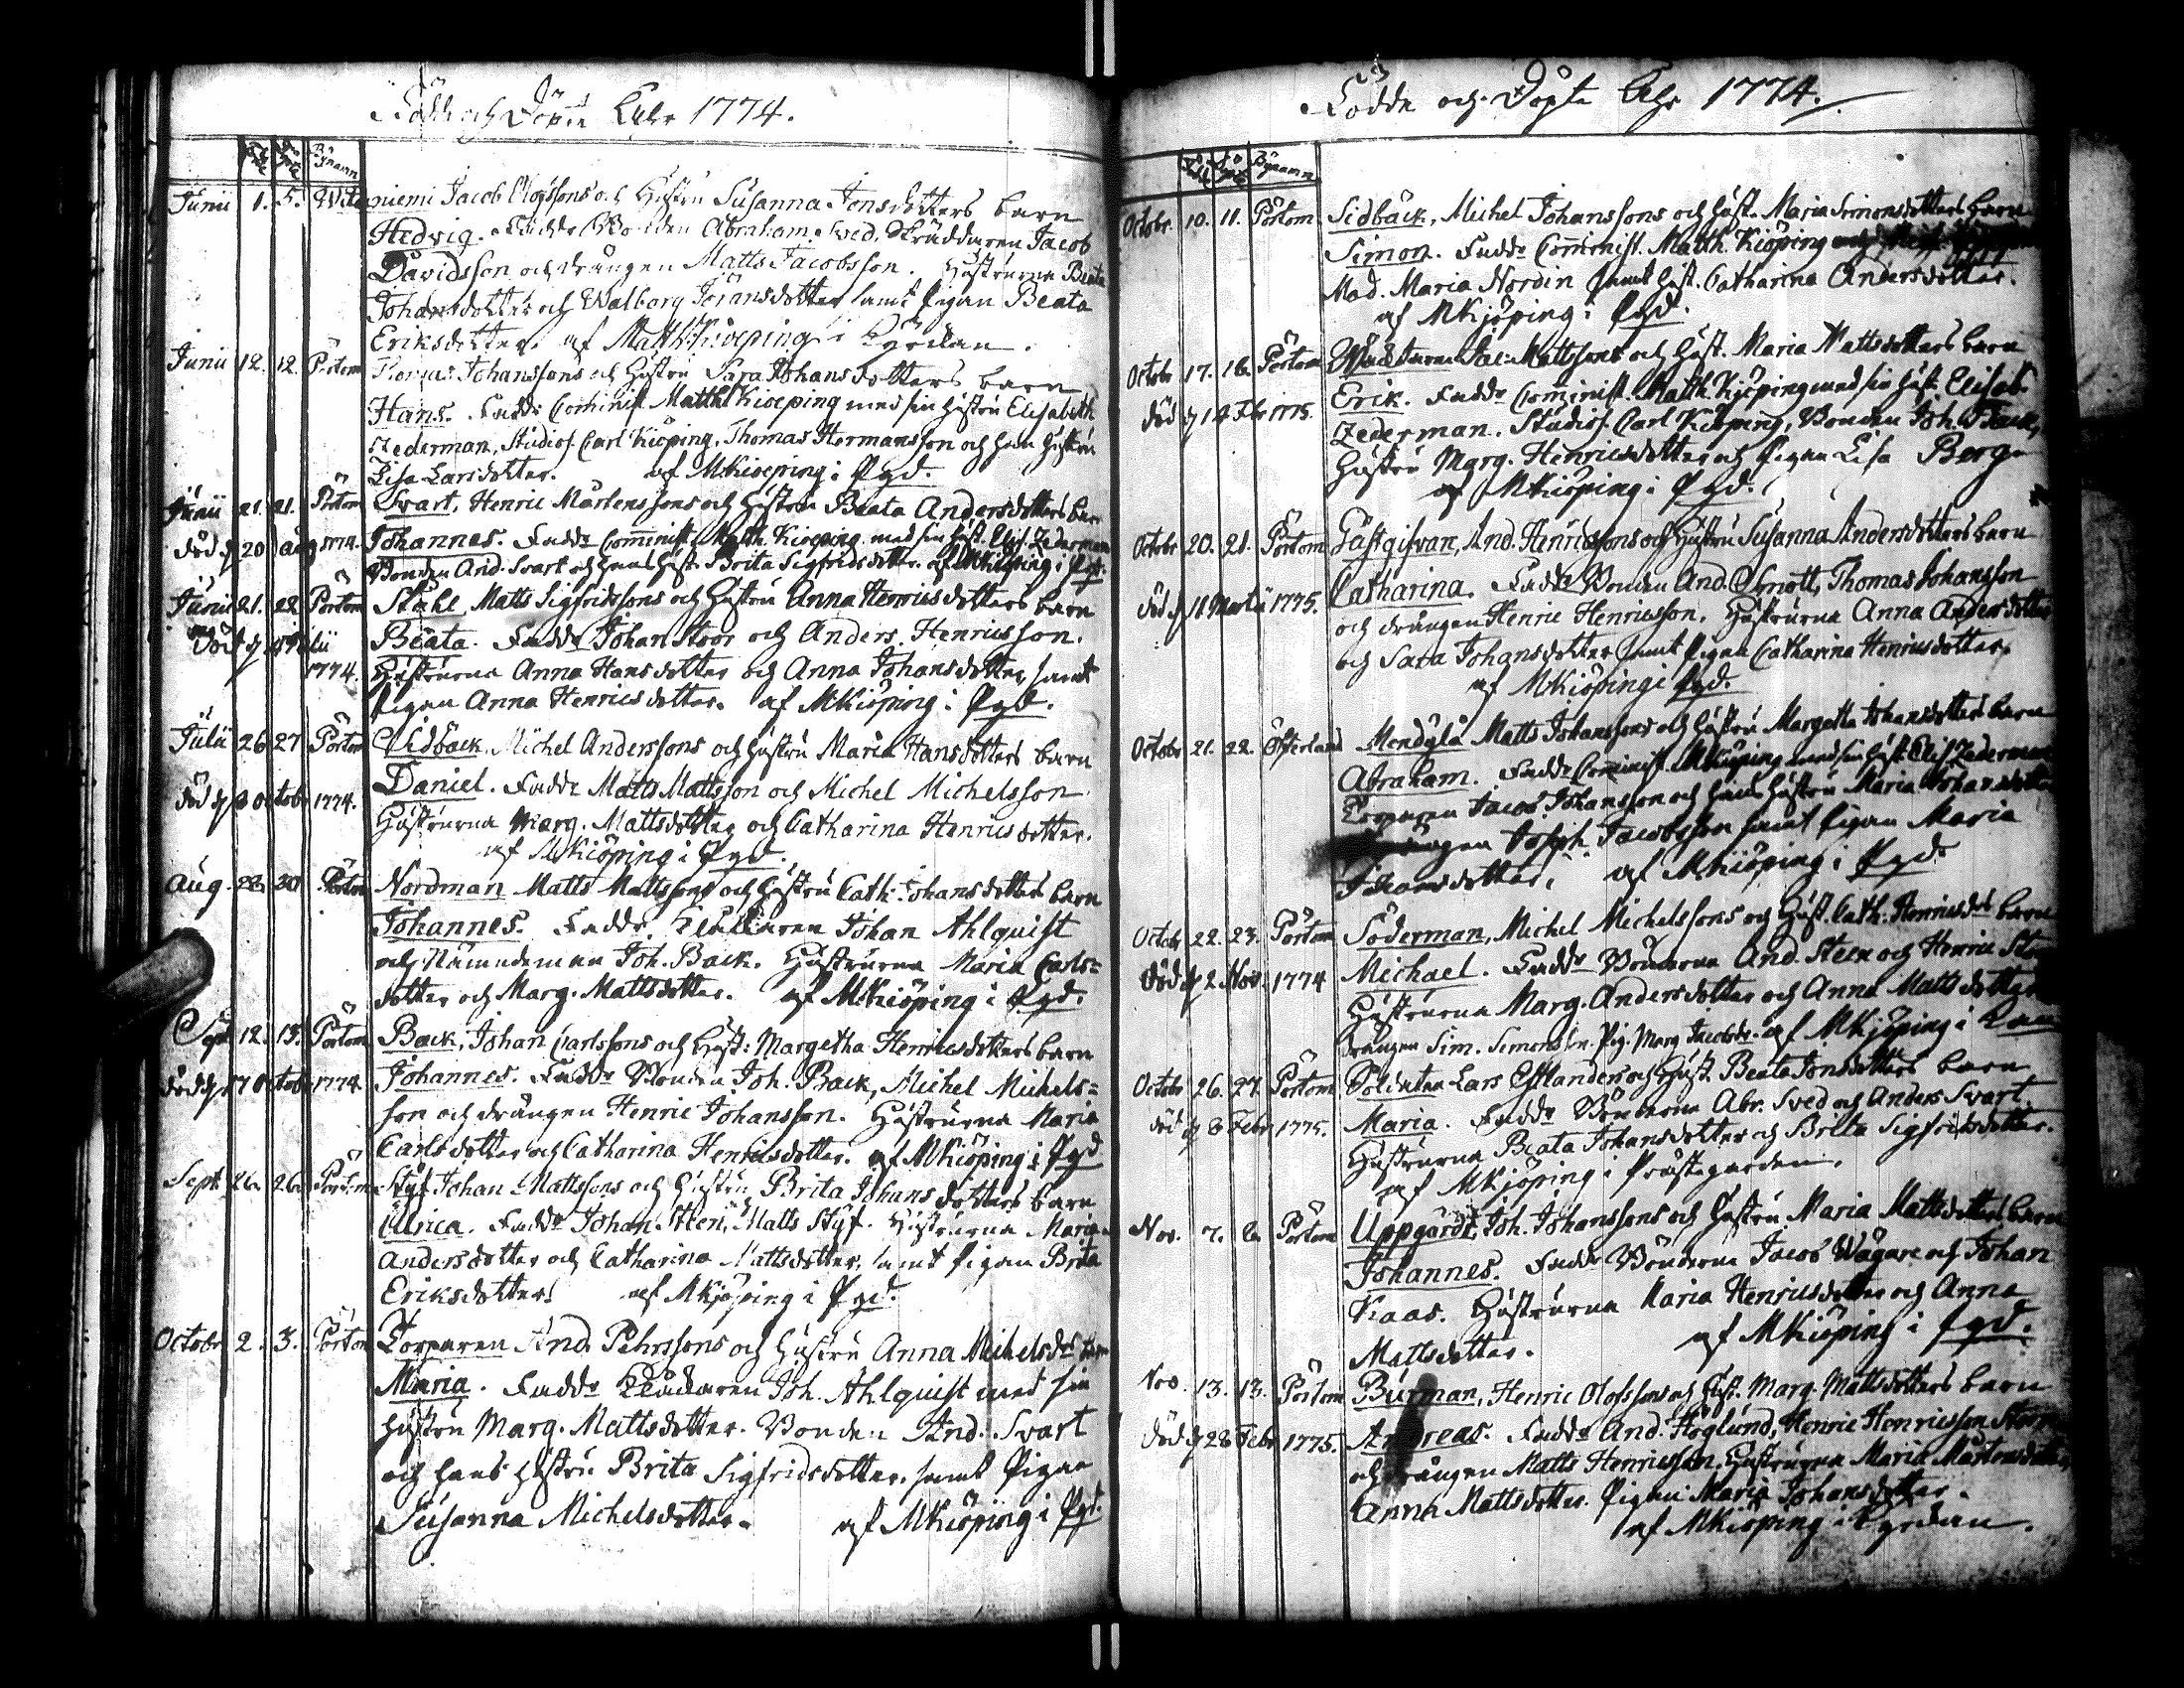 Födde och Döpte Åhr 1774.
Junii 1. 5. niemi Jacob Olofssons och Hustru Susanna Jonsdotters barn
Hedvig. Fadde Bonden Abraham Sved, Skräddaren Jacob
Davidsson och drängen Matts Jacobsson. Hustrurna Beata
Johansdotter och Walborg Göransdotter samt Pigan Beata
Eriksdotter. af Matth. Kioeping i Kyrckan.
Junii 12. 12. Pörtom Thomas Johanssons och Hustru Sara Johansdotters barn
Hans. Fadde Comminist. Matth. Kioeping med sin Hustru Elisabeth
Zederman, Studios. Carl Kiöping, Thomas Hermansson och hans Hustru
Lisa Larsdotter. af MKioeping i Pgd.
Junii 21. 21. Pörtom Svart, Henric Mårtenssons och Hustru Beata Andersdotters barn
död d 20 aug 1774. Johannes. Fadde Comminist. Matth. Kioeping med sin Hust. Elis. Zederman
Bonden And. Svart och hans Hust. Brita Sigfridsdotter. af MKiöping i Pgd.
Junii 21. 22. Pörtom Ståhl, Matts Sigfridssons och Hustru Anna Henricsdotters barn
Beata. Fadde Johan Stoor och Anders Henricsson.
1774. Hustrurna Anna Hansdotter och Anna Johansdotter samt
Pigan Anna Henricsdotter. af MKiöping i Pgd.
Julii 26 27 Pörtom Sidbäck, Michel Anderssons och Hustru Maria Hansdotters barn
Daniel. Fadde Matts Mattsson och Michel Michelsson
död d Octobr 1774. Hustrurna Marg. Mattsdotter och Catharina Henricsdotter.
af MKiöping i Pgd.
Aug. 30 Pörtom Nordman Matts Mattssons och Hustru Cath. Johansdotters barn
Johannes. Fadde, Klåckaren Johan Ahlquist
och Nämndeman Joh. Back. Hustrurna Maria Carls=
dotter och Marg. Mattsdotter. af MKiöping i Pgd.
Sept 12. 13. Pörtom Back, Johan Carlssons och Hust: Margetha Henricsdotters barn
död d 17 Octobr 1774. Johannes. Fadde Bonden Joh. Back, Michel Michels=
son och drängen Henric Johansson. Hustrurna Maria
Carlsdotter och Catharina Henricsdotter. af MKiöping i Pgd
Sept. 26. 26. Pörtom Styf Johan Mattssons och Hustru Brita Johansdotters barn
Ulrica. Fadde Johan Steen, Matts Styf. Hustrurna Marg.
Andersdotter och Catharina Mattsdotter, samt Pigan Brita
Eriksdotter. af MKjöping i Pgd.
Octobr 2. 3. Pörtom Torparen And. Pehrssons och Hustru Anna Michelsdrs barn
Maria. Fadde Klåckaren Joh. Ahlquist med sin
Hustru Marg. Mattsdotter. Bonden And. Svart
och hans Hustru Brita Sigfridsdotter, samt Pigan
Susanna Michelsdotter. af MKiöping i Pgd.
Födde och Döpte Åhr 1774.
Octobr. 10. 11. Pörtom Sidbäck, Michel Johanssons och Hust. Maria Simonsdotters barn
Simon. Fadde Comminist. Matth. Kiöping
Mad. Maria Nordin samt Hust. Catharina Andersdotter.
af MKjöping i Pgd.
Octobr 17. 18. Pörtom Jac. Mattssons och Hust. Maria Mattsdotters barn
Erik. Fadde Comminist. Matth. Kjöping med sin Hust. Elisab.
död d 14 Febr 1775. Zederman. Studios. Carl Kiöping, Bonden Joh. Back,
Hustru Marg. Henricsdotter och Pigan Lisa Berg.
af MKiöping i Pgd.
Octobr 20. 21. Pörtom Gästgifvan, And. Henricssons och Hustru Susanna Andersdotters barn
Catharina. Fadde Bonden And. Smått, Thomas Johansson
död d 11 Martii 1775. och drängen Henric Henricsson. Hustrurna Anna Andersdotter
och Sara Johansdotter samt Pigan Catharina Henricsdotter.
af MKiöping i Pgd.
Octobr 21. 22. Österland Mendylä Matts Johanssons och Hustru Margetha Johansdotters barn
Abraham. Fadde Comminist. MKiöping med sin Hust. Elis. Zederman
Torparen Jacob Johansson och hans Hustru Maria Johansdotter
Joseph Jacobsson samt Pigan Maria
Johansdotter. af MKiöping i Pgd.
Octobr 22. 23. Pörtom Söderman, Michel Michelssons och Hust. Cath. Henricsdrs barn
död d 2 Nov. 1774 Michael. Fadde Bönderna And. Steen och Henric
Hustrurna Marg. Andersdotter och Anna Mattsdotter
drängen Sim. Simonsson. Pig. Marg. Jacobsdr. af MKjöping i
Octobr 26. 27. Pörtom Soldaten Lars Efflanders och Hust. Beata Jonsdotters barn
död d 8 Febr 1775. Maria. Fadde Bönderna Abr. Sved och Anders Svart.
Hustrurna Beata Johansdotter och Brita Sigfridsdotter.
af MKjöping i Prästegården.
Nov. 7. 8. Pörtom Uppgårds, Joh. Johanssons och Hustru Maria Mattsdotters barn
Johannes. Fadde Bönderna Jacob Wägare och Johan
Kaas. Hustrurna Maria Henricsdotter och Anna
Mattsdotter. af MKiöping i Pgd.
Nov. 13. 13. Pörtom Burman, Henric Olofssons och Hust. Marg. Mattsdotters barn
död d 28 Febr 1775. Andreas. Fadde And. Höglund, Henric Henricsson
och drängen Matts Henricsson. Hustrurna Maria Mårtensdotter,
Anna Mattsdotter. Pigan Maria Johansdotter.
af MKiöping i Kyrckan.